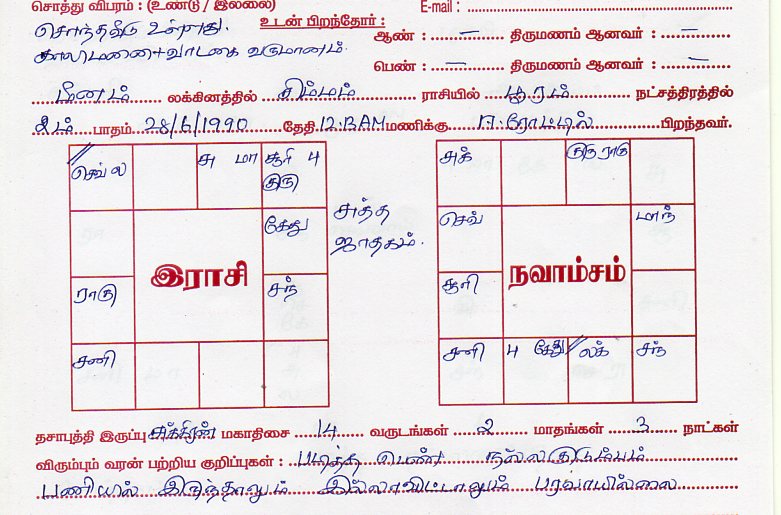 சொத்து விபரம் : (உண்டு / இல்லை) E-mail :
சொந்தவீடு உள்ளது. உடன் பிறந்தோர் :
காலிமனை+வாடகை வருமானம். ஆண் : — திருமணம் ஆனவர் : —
பெண் : — திருமணம் ஆனவர் : —
மீனம் லக்கினத்தில் சிம்மம் ராசியில் பூரம் நட்சத்திரத்தில்
2ம் பாதம் 28/6/1990 தேதி 12.12AM மணிக்கு ஈரோட்டில் பிறந்தவர்.
செவ் ல
சு மா
சூரி 4
குரு
கேது
ராகு
சந்
சனி
இராசி
சுத்த
ஜாதகம்.
சுக்
குரு ராகு
செவ்
மாந்
சூரி
சனி
4 கேது
லக்
சந்
நவாம்சம்
தசாபுத்தி இருப்பு சுக்கிரன் மகாதிசை 14 வருடங்கள் 2 மாதங்கள் 3 நாட்கள்
விரும்பும் வரன் பற்றிய குறிப்புகள் : படித்த பெண் நல்லகுடும்பம்
பணியில் இருந்தாலும் இல்லாவிட்டாலும் பரவாயில்லை